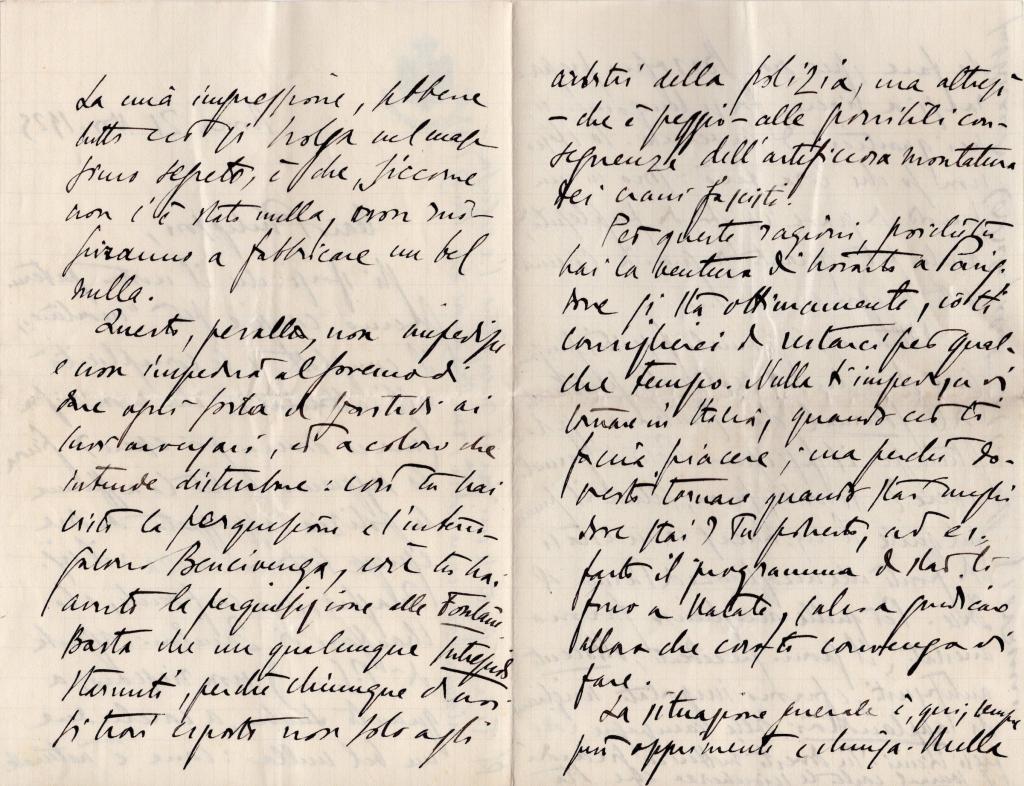 La mia impressione, sebbene
tutto ciò si svolga nel mas-
simo segreto, è che, siccome
non c'è stato nulla, non riu-
sciranno a fabbricare un bel
nulla.
Questo, peraltro, non impedisce
e non impedirà al governo di
dare ogni sorta di fastidi ai
suoi avversari, ed a coloro che
intende disturbare: così tu hai
visto la perquisizione e l'interro-
gatorio Bencivenga, così tu hai
avuto la perquisizione alle Fontane
Basta che un qualunque
starnuti, perché chiunque di noi
si trovi esposto non solo agli
arbitrii della polizia, ma altresì
- che è peggio - alle possibili con-
seguenze dell'artificiosa montatura
dei crani fascisti.
Per queste ragioni, poiché tu
hai la ventura di trovarti a Parigi
dove si sta ottimamente, io ti
consiglierei di restarci per qual-
che tempo. Nulla ti impedisce di
tornare in Italia, quando ciò ti
faccia piacere; ma perché do-
vresti tornare quando stai meglio
dove stai? Tu potresti, ad es.
fare il programma di star lì
fino a Natale, salvo a giudicare
allora che cosa ti convenga di
fare.
La situazione generale è, qui, sempre
più opprimente e chiusa. Nulla